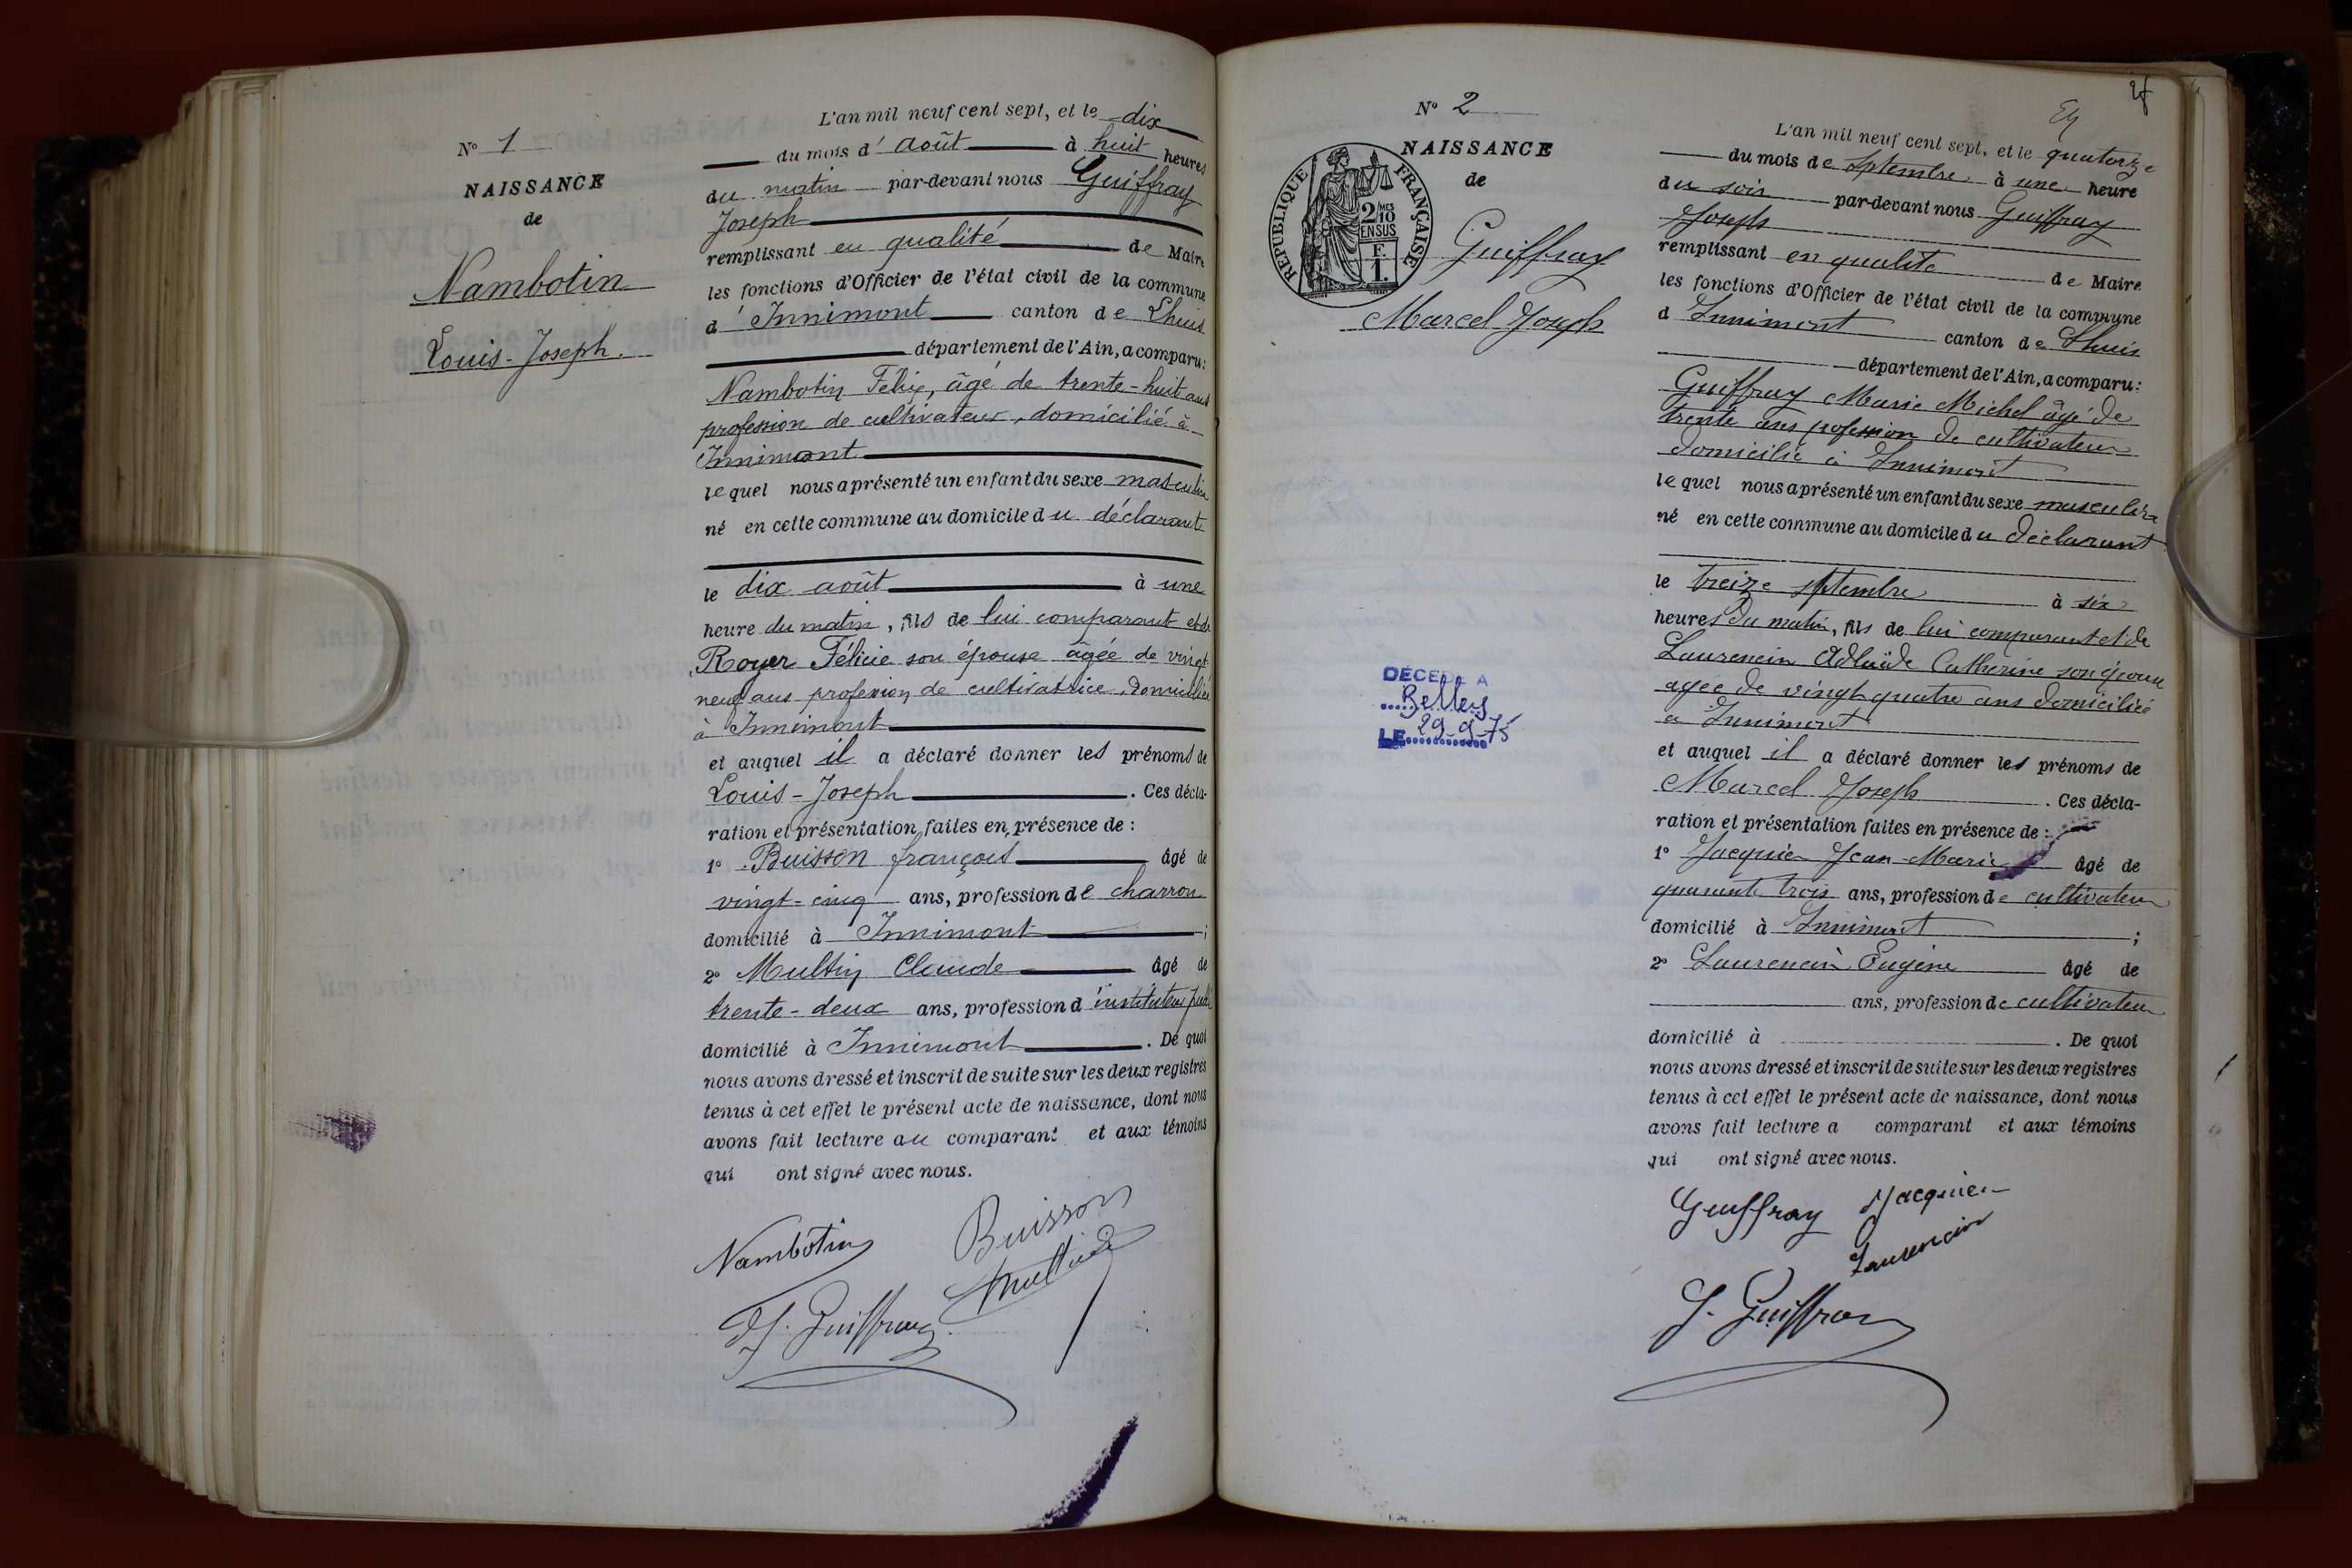 N° 1
NAISSANCE
de
Nambotin
Louis-Joseph.
L'an mil neuf cent sept, et le dix
du mois d'août à huit heures
du matin par-devant nous Guiffray
Joseph
remplissant en qualité de Maire
les fonctions d'Officier de l'état civil de la commune
d'Innimont canton de Lhuis
département de l'Ain, a comparu:
Nambotin Félix, âgé de trente-huit ans
profession de cultivateur, domicilié à
Innimont
lequel nous a présenté un enfant du sexe masculin
né en cette commune au domicile du déclarant
le dix août à une
heure du matin, fils de lui comparant et de
Royer Félicie son épouse âgée de vingt
neuf ans profession de cultivatrice, domiciliée
à Innimont
et auquel il a déclaré donner les prénoms de
Louis-Joseph. Ces décla-
ration et présentation faites en présence de :
1° Buisson françois âgé de
vingt-cinq ans, profession de charron
domicilié à Innimont ;
2° Multin Claude âgé de
trente-deux ans, profession d'instituteur
domicilié à Innimont. De quoi
nous avons dressé et inscrit de suite sur les deux registres
tenus à cet effet le présent acte de naissance, dont nous
avons fait lecture au comparant et aux témoins
qui ont signé avec nous.
Nambotin Buisson
Multin
J. Guiffray
N° 2
NAISSANCE
de
RÉPUBLIQUE FRANÇAISE
2/10 MES
EN SUS
F.
1.
Guiffray
Marcel Joseph
DÉCÉDÉ A
Belley
LE 29-9-75
L'an mil neuf cent sept, et le quatorze
du mois de septembre à une heure
du soir par-devant nous Guiffray
Joseph
remplissant en qualité de Maire
les fonctions d'Officier de l'état civil de la commune
d Innimont canton de Lhuis
département de l'Ain, a comparu:
Guiffray Marie Michel âgé de
trente ans profession de cultivateur
domicilié à Innimont
lequel nous a présenté un enfant du sexe masculin
né en cette commune au domicile du déclarant
le treize septembre à six
heures du matin, fils de lui comparant et de
Laurencin Adlaïde Catherine son épouse
agée de vingt quatre ans domiciliée
à Innimont
et auquel il a déclaré donner les prénoms de
Marcel Joseph. Ces décla-
ration et présentation faites en présence de :
1° Jacquier Jean-Marie âgé de
quarante trois ans, profession de cultivateur
domicilié à Innimont ;
2° Laurencin Eugène âgé de
ans, profession de cultivateur
domicilié à . De quoi
nous avons dressé et inscrit de suite sur les deux registres
tenus à cet effet le présent acte de naissance, dont nous
avons fait lecture a comparant et aux témoins
qui ont signé avec nous.
Guiffray Jacquier
Laurencin
J. Guiffray